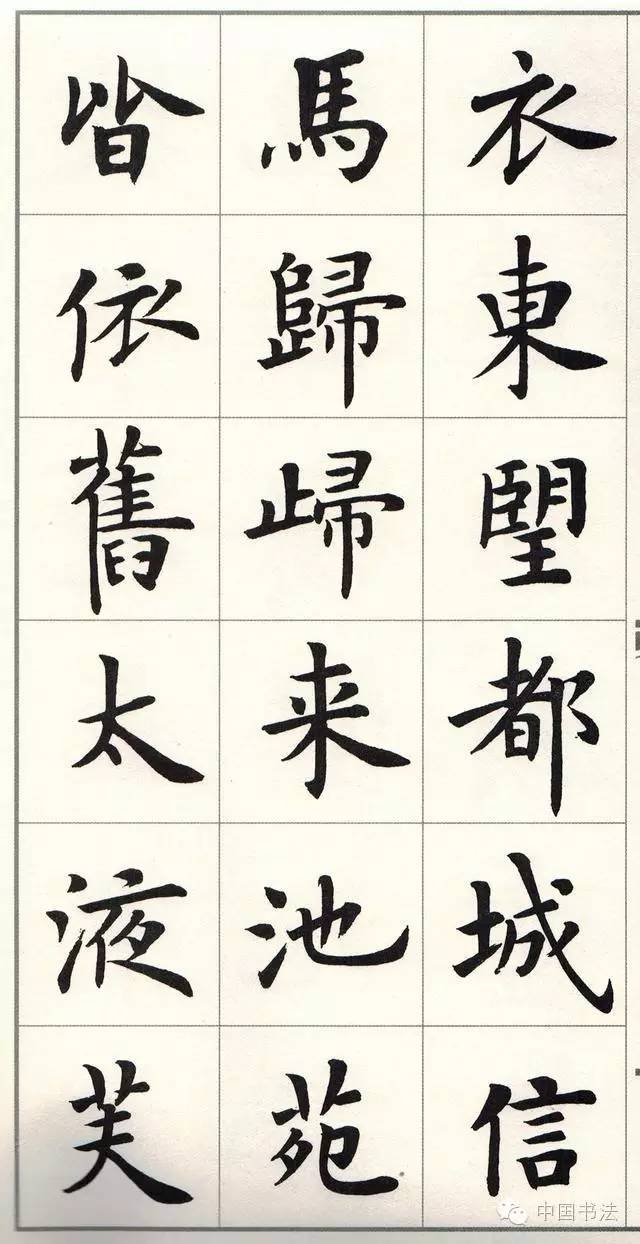 衣東望都城信
馬歸歸来池苑
皆依舊太液芙
中国书法